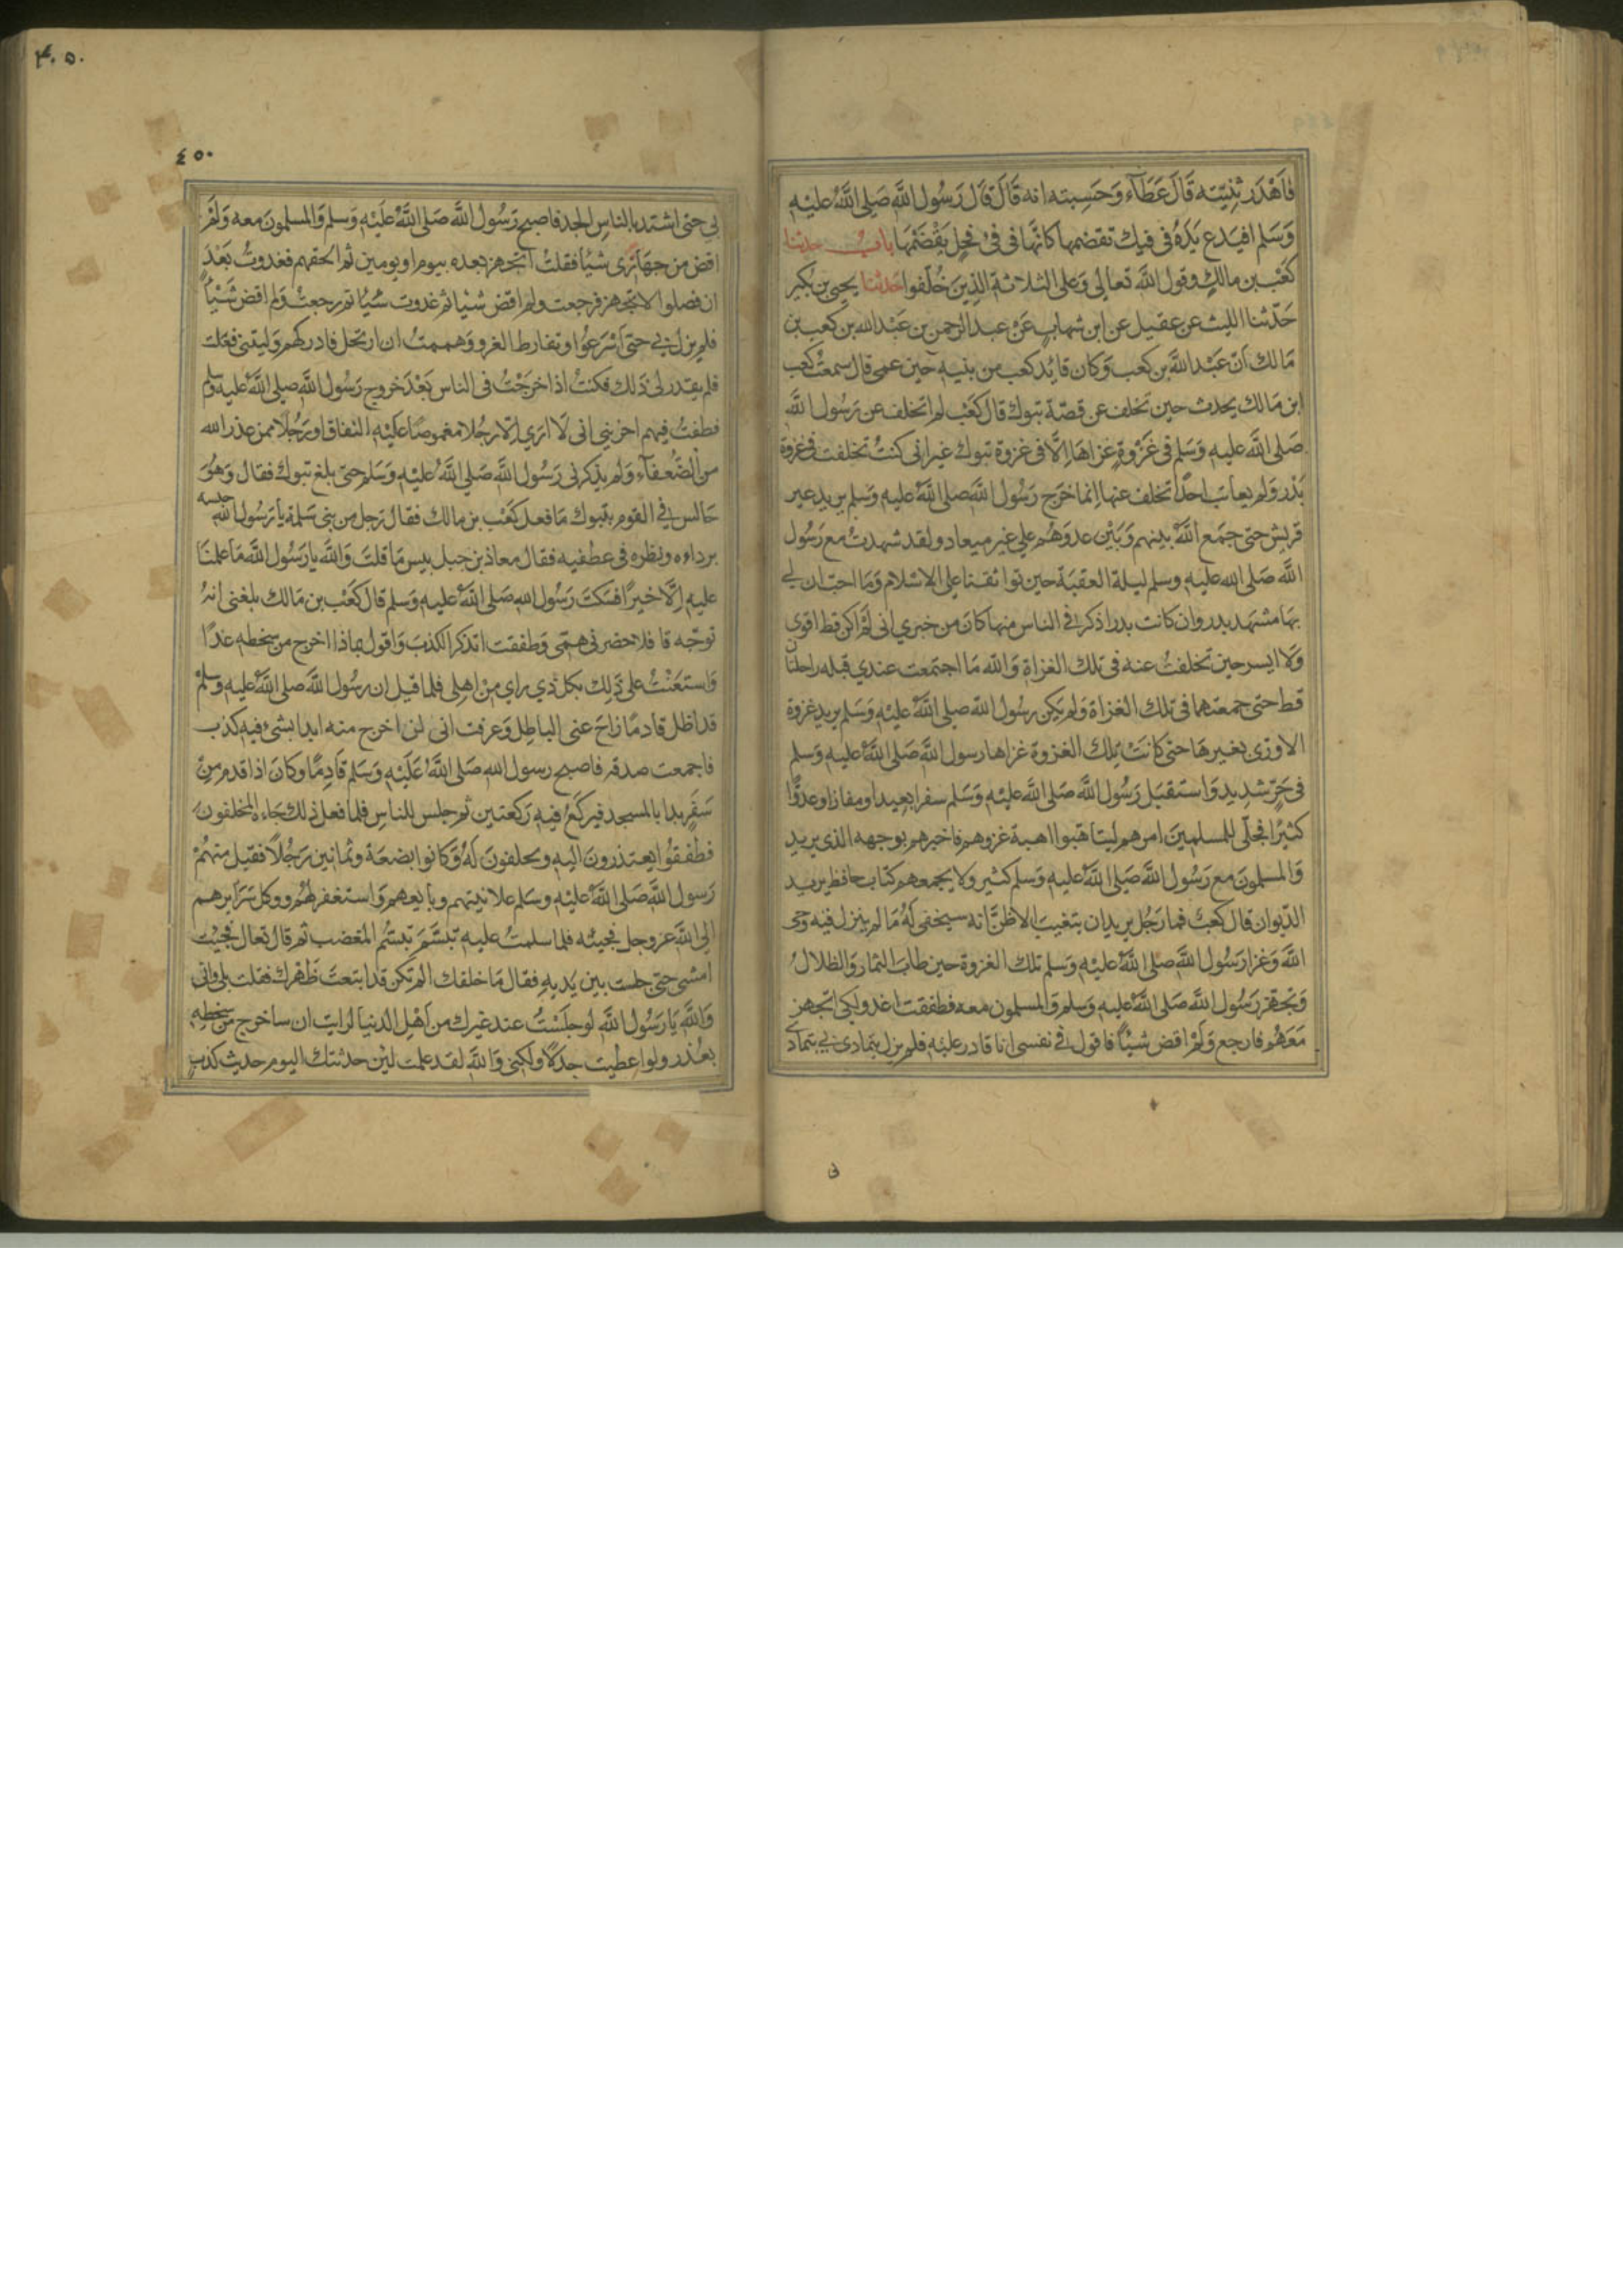 فاهدر ثنيته قَالَ عَطَآء وَحَسِبته انه قَالَ قَالَ رَسُول اللَّه صَلى اللَّهُ عليْهِ
وَسَلم افيَدع يَدَهُ فى فيك تقضمها كانَّها فى فىْ فحِلٍ يَقْضَمُهَا باب حديث
كعْب بن مالكٍ وقول اللَّه تعالى وَعلى الثلاثة الذِينَ خُلّفوا حَدثنا يحيى بن بُكير
حَدّثنا الليث عن عقيل عن ابن شهابٍ عَنْ عبد الرحمن بن عَبْد الله بن كعب بن
مَالك انّ عَبْد اللَّه بن كعب وَكان قائد كعب من بنيه حين عمى قال سمعتُ كعب
ابن مَالك يحدث حين تخلف عن قصّة تبوك قال كَعْب لم اتخلف عن رَسُول اللَّه
صَلى اللَّه عليه وَسَلم فى غَزْوةٍ غزاهَا اِلَّا فى غزوة تبوك غير انى كنتُ تخلفت فى غزوة
بَدْر وَلم يعاتَب احدًا تخلف عنها انما خرَج رَسُول اللَّه صلى اللَّهُ عليه وَسلم يريد عير
قريش حتى جمَع اللَّه بينهم وَبَيْن عدوّهُم على غير ميعاد ولقد شهدتُ مع رَسُول
اللَّه صَلى الله عليه وسلم ليلة العقبَة حين تواثقنا على الاسْلام وَمَا احبّ ان لى
بهَا مشهَد بدر وان كانت بدر اذكر فى الناس منها كانَ من خبري انى لَمْ اكن قط اقوى
وَلا ايسر حين تخلفتُ عنه فى تلك الغزاة وَالله مَا اجتمعت عندي قبله راحلتان
قط حتى جمعتهما فى تلك الغزاة وَلم يَكن رسُول اللَّه صلى اللَّهُ عليْهِ وَسَلم يريد غزوة
الا ورّى بغيرهَا حتى كانَتْ تِلك الغزوة غزاها رسول اللَّه صَلى اللَّهُ عليه وَسلم
فى حَرّ شديد وَاستَقبَل رَسُول اللَّه صَلى اللَّهُ عليْهِ وَسَلم سفرا بعِيدا ومفازا وعدوًّا
كثيرًا فجلّى للمسلمِينَ امرهم ليتاهّبوا اهبة غزوهم فاخبرهم بوجهه الذى يريد
وَالمسلمونَ مع رَسُول اللَّه صَلى اللَّهُ عليه وَسلم كثير ولا يجمعهم كتاب حافظ يريد
الدّيوان قال كعبٌ فما رَجُل يريد ان يتغيب الا ظنّ انه سيخفى لهُ مَا لم ينزل فيه وحى
اللَّه وَغزا رَسُول اللَّه صلى اللَّهُ عليه وَسلم تلك الغزوة حين طابَ الثمار وَالظلالُ
وَتجهّز رَسُول اللَّه صَلى اللَّهُ عليه وَسلم وَالمسلمون معه فطفقت اغدو لكى اتجهز
مَعَهُم فارجع وَلمْ اقض شيئًا فاقول فى نفسى انا قادر عليْهِ فلم يزل يتمادى بى يتمادى
بى
٤٠٥٠
٤٥٠
بى حتى اشتد بالناس الجد فاصبح رَسُول اللَّه صَلى اللَّهُ عَليْهِ وَسلم وَالمسلمونَ معه وَلمْ
اقض من جهَازى شيئا فقلتُ اتجهز بعده بيوم او يومين ثم الحقهم فغدوتُ بَعْدَ
ان فصلوا لاتجهز فرجعت ولم اقض شيئا ثم غدوت شيئا ثم رجعتُ ولم اقض شَيْئًا
فلم يزل بى حتى اسْرَعُوا وتفارط الغزو وَهممتُ ان ارتحل فادركهم وَليتنى فعَلت
فلم يقدر لى ذَلك فكنتُ اذا خرَجْتُ فى الناس بَعْدَ خروج رَسُول اللَّه صلى اللَّهُ عليه وَسلم
فطفتُ فيهم احزننى انى لَا ارَي اِلّا رجُلا مغموصًا عَليْه النفاق او رَجُلًا ممن عذر الله
من الضُعفآء وَلم يذكرنى رَسُول اللَّه صَلي اللَّهُ عليْهِ وَسَلم حتى بلغ تبوك فقال وَهُوَ
جَالس فى القوم بتبوك مَا فعل كَعْب بن مالك فقال رجل من بنى سَلمة يا رَسُول اللَّه حبسه
برداءه ونظره فى عطفيه فقال معاذ بن جبل بيس مَا قلتَ وَاللَّه يا رَسُول اللَّه مَا علمنَا
عليه اِلَّا خيرًا فسَكتَ رَسُول اللَّهِ صَلى اللَّهُ عليه وَسلم قال كَعْب بن مَالك بلغنى انهُ
توجّه قافلا حضرنى همّى وَطفقت اتذكر الكذبَ وَاقول بماذا اخرج من سخطه غدًا
وَاستعَنْتُ على ذَلِك بكل ذي راي من اهلى فلما قيل ان رسُول اللَّه صلى اللَّهُ عليه وسلمْ
قد اظل قادمًا زاحَ عنى الباطِل وَعرفت انى لن اخرج منه ابدا بشىء فيه كذب
فاجمعت صدقه فاصبح رسول الله صَلى اللَّهُ عَلَيْهِ وَسَلم قَادِمًا وكانَ اذا قدم من
سَفَرٍ بدا بالمسجد فيركَعُ فيهِ رَكعتين ثم جلس للناس فلما فعل ذلك جَاءه المخلفونَ
فطفقُوا يعتذرونَ اليه ويحلفونَ لهُ وَكانوا بضعَة وثمانين رَجُلًا فقبل منهُمْ
رَسول اللَّه صَلى اللَّهُ عليْهِ وسَلم علانيتهم وبايَعهم وَاستغفر لهُم ووكل سَرَايرهم
الى اللَّه عز وجل فجيئه فلما سلمتُ عليه تبسَّمَ تبسُّم المغضب ثم قال تعال فجئت
امشى حتى جلست بين يَديهِ فقال مَا خلفك الم تكن قد ابتعتَ ظهرك فقلت بلى وانى
وَاللَّه يَا رَسُول اللَّه لو جلَسْتُ عند غيرك من اهْل الدنيا لرايت ان ساخرج من سَخطِهِ
بعُذر ولو اعطيت جدَلًا ولكنى وَاللَّه لقد علمت لئن حدثتك اليوم حديث كذبٍ